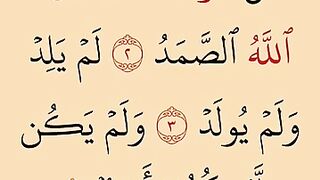 ٱللَّهُ ٱلصَّمَدُ ٢ لَمْ يَلِدْ
وَلَمْ يُولَدْ ٣ وَلَمْ يَكُن